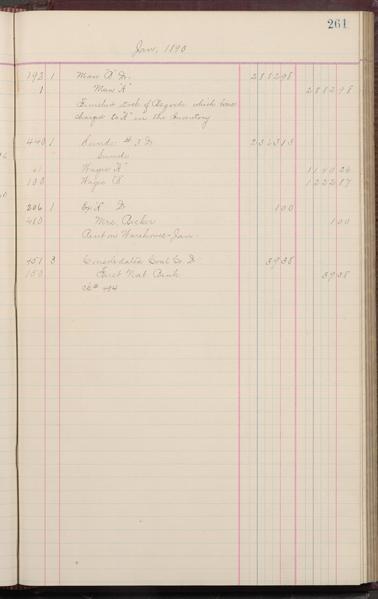 261
Jan, 1890
193 1 Man "A" Dr. 288298
1 Man "K" 288298
Finished stock of goods which was
charged to "K" in the Inventory
440 1 Sunds # 3 Dr 236313
Sunds
41 Wages "K" 114026
100 Wages 122287
206 1 Ex "K" Dr 100
480 Mrs. Bicker 100
Rent on Warehouse - Jan.
451 3 Consolidated Coal Co. Dr 3938
150 First Nat. Bank 3938
Ck #